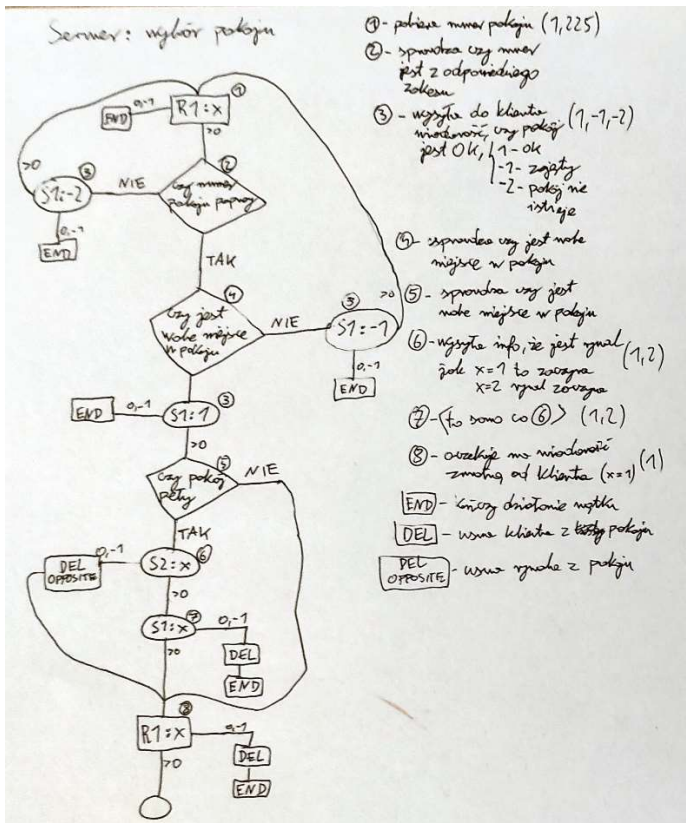 Serwer: wybór pokoju
①
R1:x
0,-1
END
>0
>0
②
czy numer
pokoju popraw
NIE
③
S1:-2
0,-1
END
TAK
④
Czy jest
wolne miejsce
w pokoju
NIE
③
S1:-1
>0
0,-1
END
③
S1:1
0,-1
END
>0
⑤
Czy pokój
pełny
NIE
TAK
⑥
S2:x
0,-1
DEL
OPPOSITE
>0
⑦
S1:x
0,-1
DEL
END
>0
⑧
R1:x
0,-1
DEL
END
>0
① - pobiera numer pokoju (1,225)
② - sprawdza czy numer
jest z odpowiedniego
zakresu
③ - wysyła do klienta
wiadomość, czy pokój (1,-1,-2)
jest OK, 1 - ok
-1 - zajęty
-2 - pokój nie
istnieje
④ - sprawdza czy jest wolne
miejsce w pokoju
⑤ - sprawdza czy jest
wolne miejsce w pokoju
⑥ - wysyła info, że jest rywal (1,2)
jak x=1 to zaczyna
x=2 rywal zaczyna
⑦ - <to samo co ⑥> (1,2)
⑧ - oczekuje na wiadomość
zwrotną od klienta (x=1) (1)
END - kończy działanie wątku
DEL - usuwa klienta z pokoju
DEL
OPPOSITE - usuwa rywala z pokoju